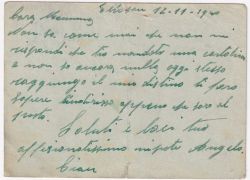 12-11-19
Cara Mamma
Non so come mai che non mi
rispondi che ho mandato una cartolina
e non so ancora nulla, oggi stesso
raggiungo il mio distino ti farò
sapere l'indirizzo appena che sarò al
posto.
Saluti e baci tuo
affezionatissimo nipote Angelo.
Ciau